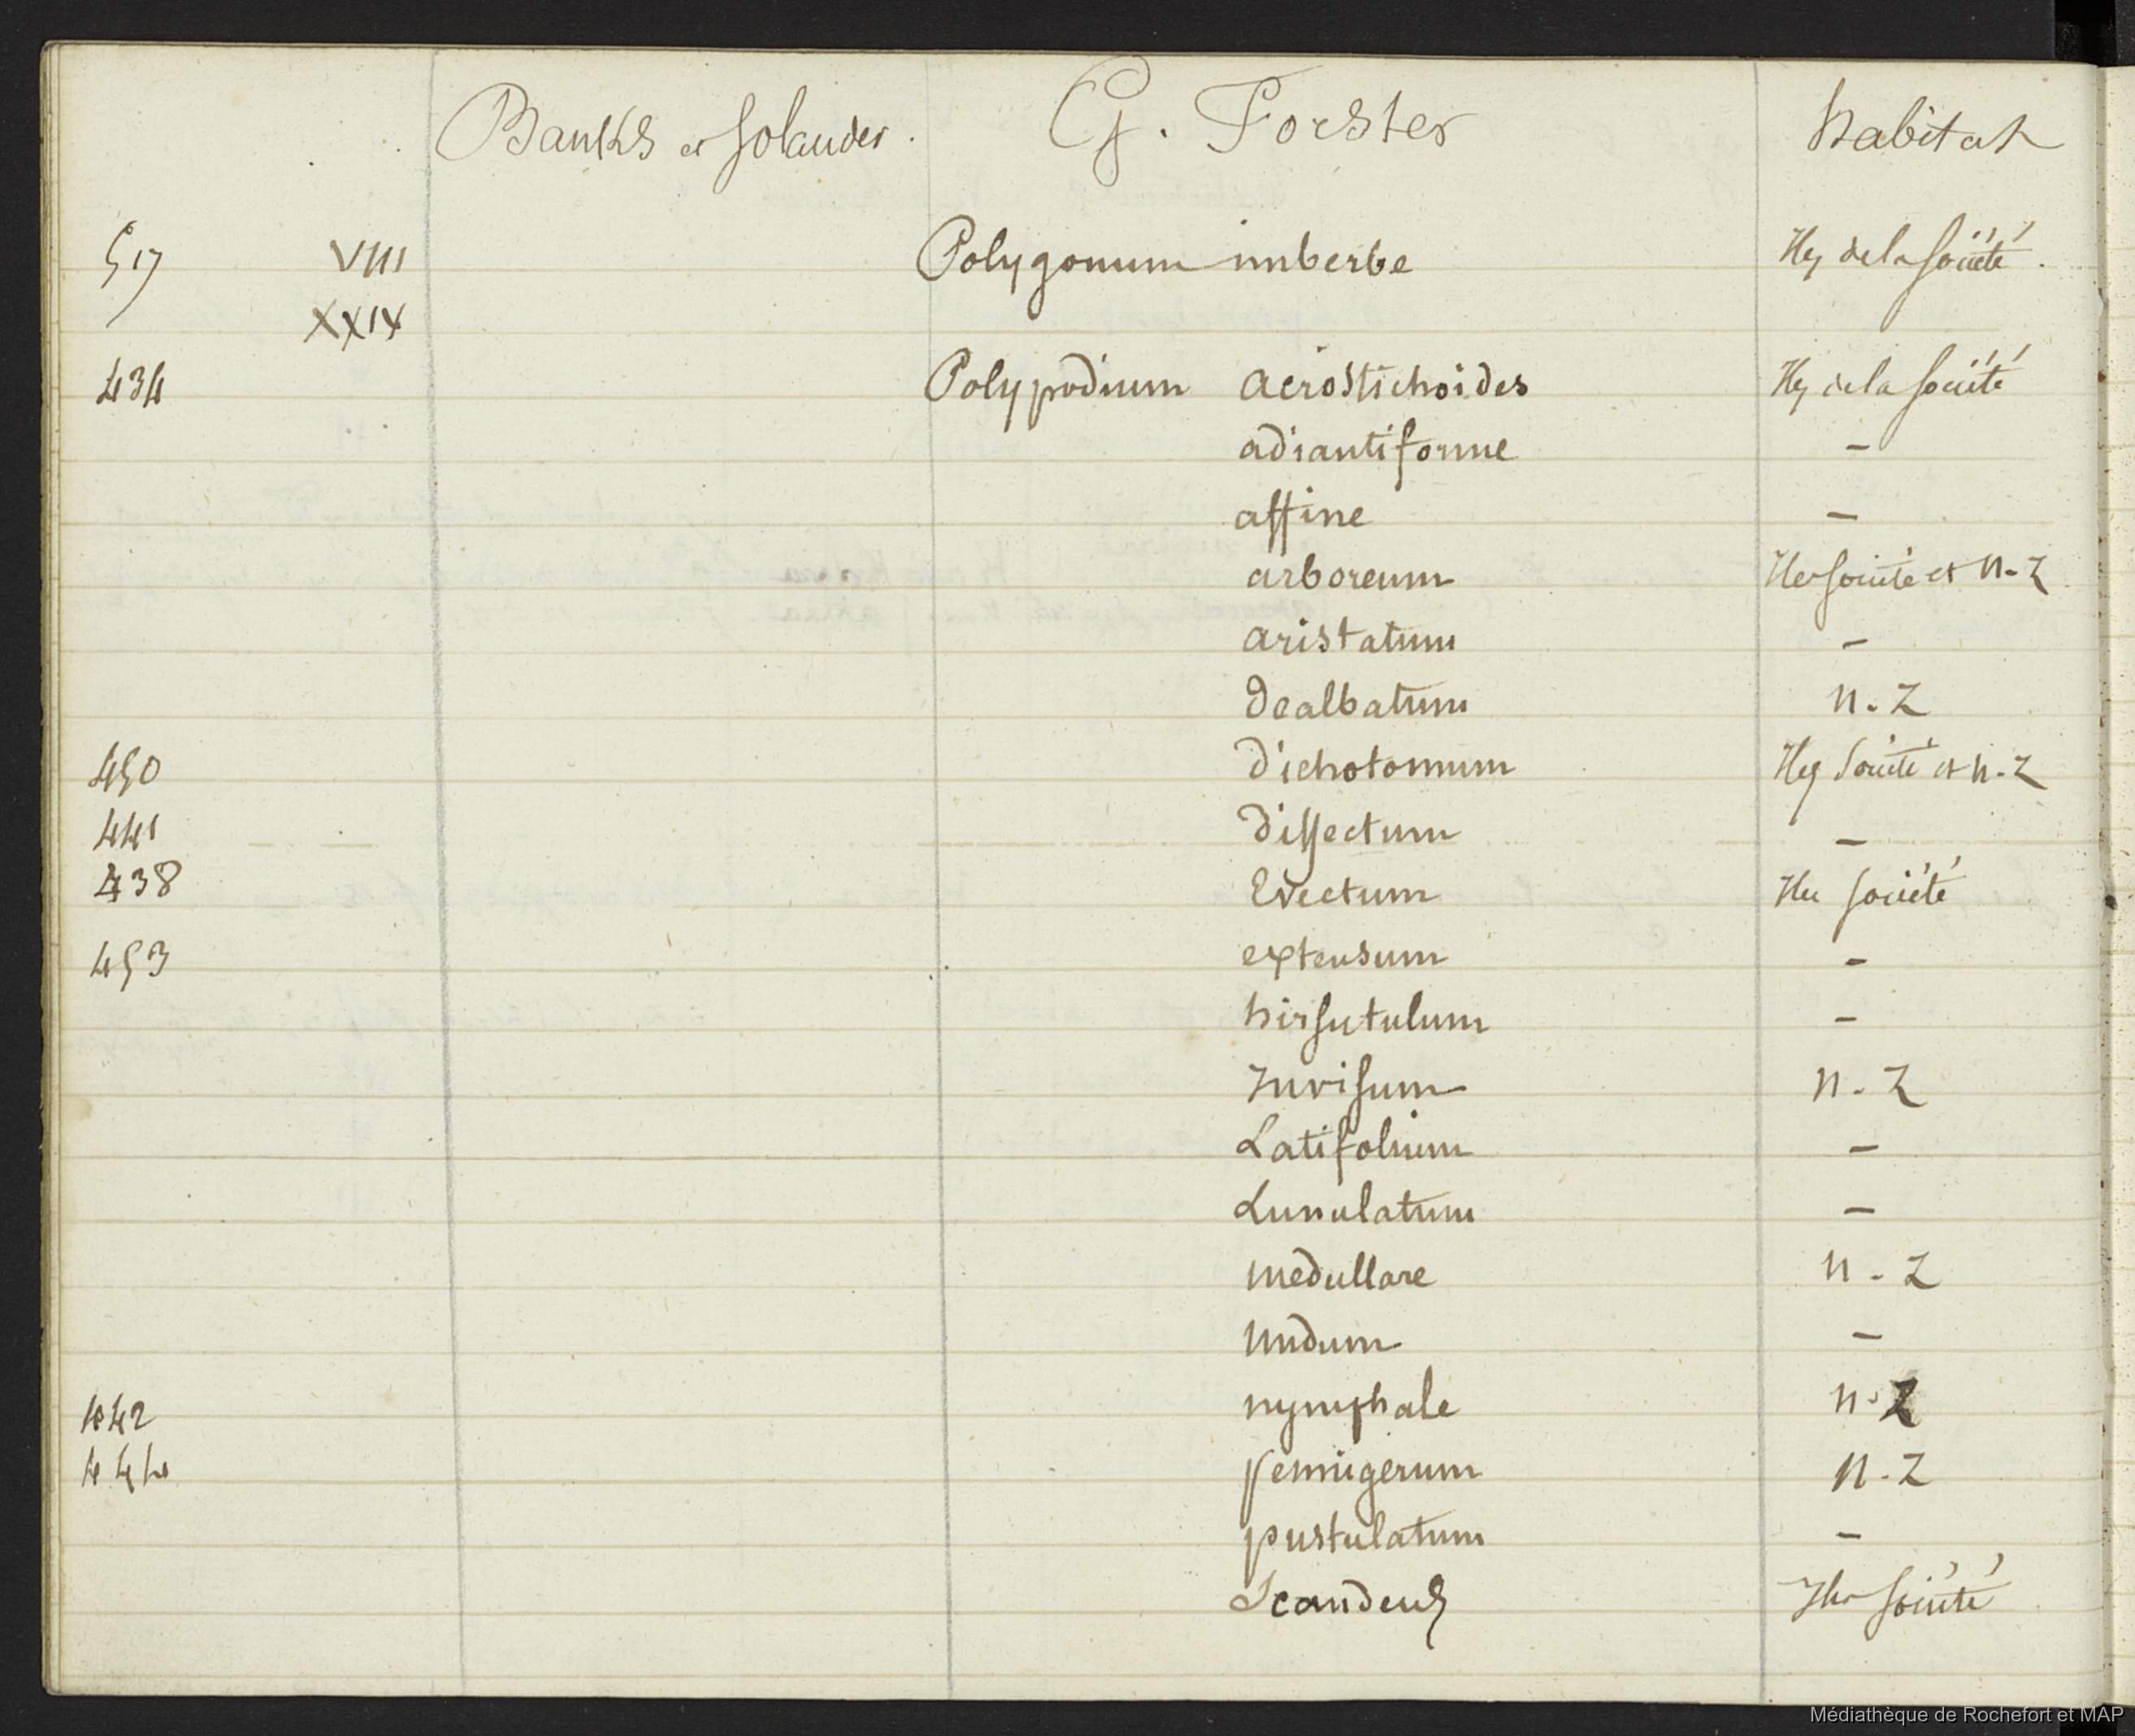 Banks et Solander. G. Forster Habitat
517 VIII Polygonum imberbe Iles de la Société.
XXIV
434 Polypodium acrostichoides Iles de la Société
adiantiforme –
affine –
arboreum Iles Société et N-Z
aristatum –
dealbatum N-Z
450 dichotomum Iles Société et N-Z
441 dissectum –
438 Evectum Iles Société
453 extensum –
hirsutulum –
Invisum N-Z
Latifolium –
Lunulatum –
medullare N-Z
nudum –
442 nymphale N-Z
444 pennigerum N-Z
pustulatum –
Scandens Iles Société
Médiathèque de Rochefort et MAP